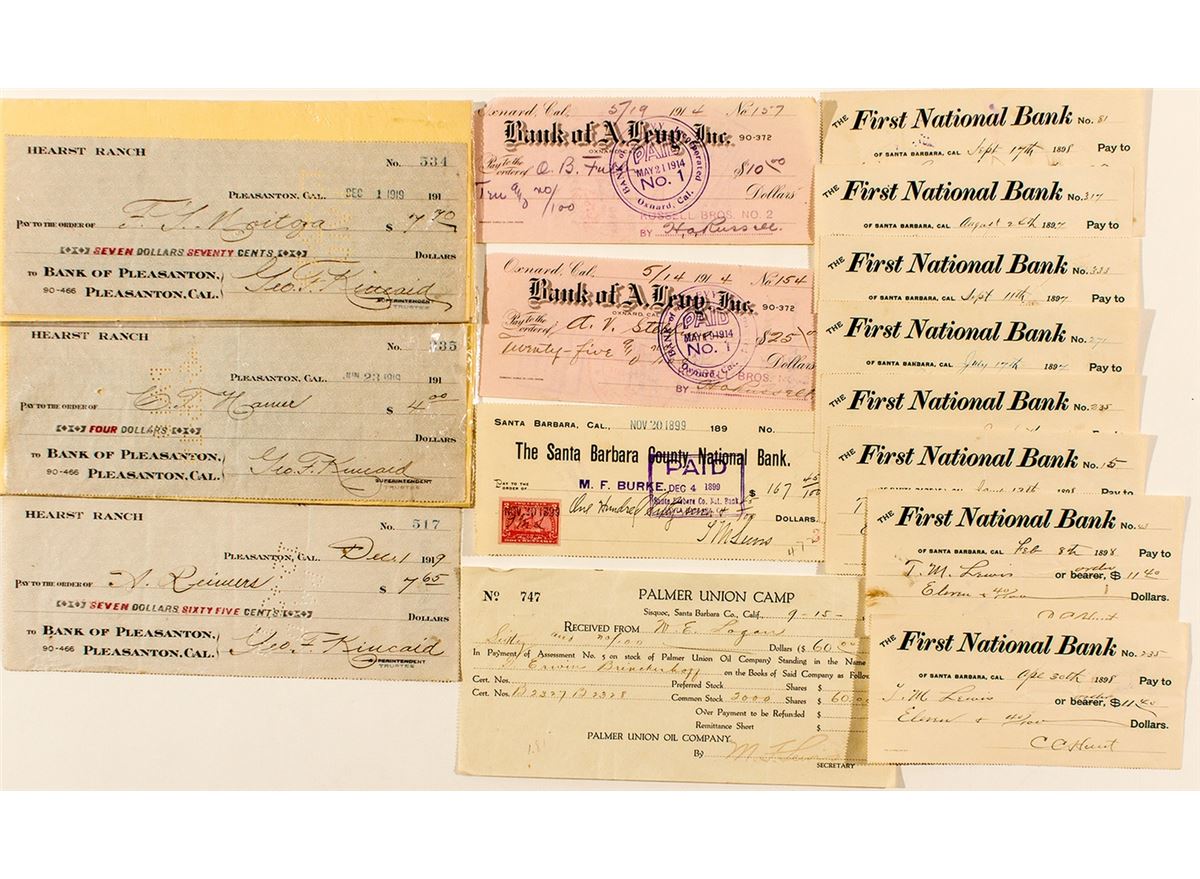 HEARST RANCH
No. 534
PLEASANTON, CAL. DEC 1 1919 191
PAY TO THE ORDER OF $ 7.70
SEVEN DOLLARS SEVENTY CENTS DOLLARS
TO BANK OF PLEASANTON,
90-466 PLEASANTON, CAL. Geo. F. Kincaid
SUPERINTENDENT
TRUSTEE
HEARST RANCH
No. 535
PLEASANTON, CAL. JUN 23 1919 191
PAY TO THE ORDER OF $ 4.00
FOUR DOLLARS DOLLARS
TO BANK OF PLEASANTON,
90-466 PLEASANTON, CAL. Geo. F. Kincaid
SUPERINTENDENT
HEARST RANCH
No. 517
PLEASANTON, CAL. Dec. 1 1919
PAY TO THE ORDER OF A. Reimers $ 7.65
SEVEN DOLLARS SIXTY FIVE CENTS DOLLARS
TO BANK OF PLEASANTON,
90-466 PLEASANTON, CAL. Geo. F. Kincaid
SUPERINTENDENT
TRUSTEE
Oxnard, Cal., 5/19 1914 No. 157
Bank of A. Levy, Inc. 90-372
OXNARD
Pay to the
order of O. B. $10.00
no/100 Dollars
BANK OF A. LEVY Incorporated
PAID
MAY 21 1914
No. 1
Oxnard, Cal.
RUSSELL BROS. NO. 2
BY H.A. Russell
Oxnard, Cal., 5/14 1914 No. 154
Bank of A. Levy, Inc. 90-372
OXNARD, CAL.
Pay to the
order of A. V. $25
Twenty-five Dollars
PAID
MAY 1914
No. 1
Oxnard, Cal.
BROS.
BY H.A. Russell
SANTA BARBARA, CAL., NOV 20 1899 189 No.
The Santa Barbara County National Bank.
PAY TO THE
ORDER OF M. F. BURKE. $ 167 45/100
PAID
DEC 4 1899
Santa Barbara Co. Nat. Bank
One Hundred DOLLARS.
NOV 20 1899
No 747 PALMER UNION CAMP
Sisquoc, Santa Barbara Co., Calif., 9-15-
RECEIVED FROM W. E. Logan
Sixty and no/100 Dollars ($ 60.00
In Payment of Assessment No. 5 on stock of Palmer Union Oil Company Standing in the Name
Erwin Brinckerhoff on the Books of Said Company as Follow
Cert. Nos. Preferred Stock Shares $
Cert. Nos. B2327 B2328 Common Stock 2000 Shares $ 60.00
Over Payment to be Refunded $
Remittance Short $
PALMER UNION OIL COMPANY
By
SECRETARY
THE First National Bank No. 81
OF SANTA BARBARA, CAL Sept 17th 1898 Pay to
THE First National Bank No. 317
OF SANTA BARBARA, CAL August 26th 1897 Pay to
THE First National Bank No. 333
OF SANTA BARBARA, CAL Sept 11th 1897 Pay to
THE First National Bank No. 271
OF SANTA BARBARA, CAL July 17th 1897 Pay to
THE First National Bank No. 235
THE First National Bank No. 15
OF SANTA BARBARA, CAL 1898 Pay to
THE First National Bank No.
OF SANTA BARBARA, CAL Feb 8th 1898 Pay to
T. M. Lewis or bearer, $ 11.40
order
Eleven & 40/100 Dollars.
THE First National Bank No. 235
OF SANTA BARBARA, CAL Apr 30th 1898 Pay to
T. M. Lewis or bearer, $ 11.40
order
Eleven & 40/100 Dollars.
C C Hunt